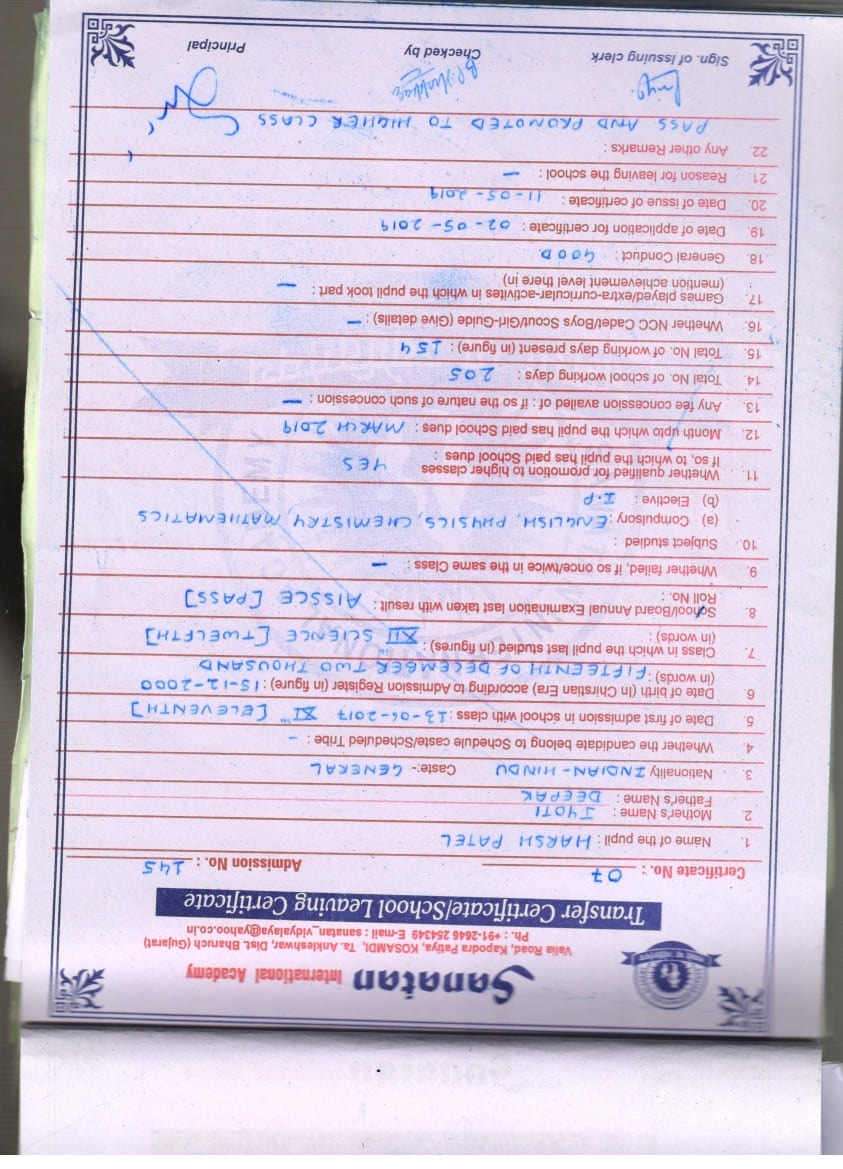 Sanatan International Academy
Valia Road, Kapodra Patiya, KOSAMDI, Ta. Ankleshwar, Dist. Bharuch (Gujarat)
Ph. : +91-2646 254349 E-mail : sanatan_vidyalaya@yahoo.co.in
Transfer Certificate/School Leaving Certificate
Certificate No. : 07 Admission No. : 145
1. Name of the pupil : HARSH PATEL
2. Mother's Name : JYOTI
Father's Name : DEEPAK
3. Nationality INDIAN-HINDU Caste:- GENERAL
4. Whether the candidate belong to Schedule caste/Scheduled Tribe : -
5. Date of first admission in school with class : 13-04-2017 XI [ELEVENTH]
6. Date of birth (In Chirstian Era) according to Admission Register (in figure) : 15-12-2000
(in words) : FIFTEENTH OF DECEMBER TWO THOUSAND
7. Class in which the pupil last studied (in figures) : XII SCIENCE [TWELFTH]
(in words) :
8. School/Board Annual Examination last taken with result : AISSCE [PASS]
Roll No. :
9. Whether failed, if so once/twice in the same Class : —
10. Subject studied :
(a) Compulsory : ENGLISH, PHYSICS, CHEMISTRY, MATHEMATICS
(b) Elective : I.P
11. Whether qualified for promotion to higher classes
If so, to which the pupil has paid School dues : YES
12. Month upto which the pupil has paid School dues : MARCH 2019
13. Any fee concession availed of : if so the nature of such concession : —
14. Total No. of school working days : 205
15. Total No. of working days present (in figure) : 154
16. Whether NCC Cadet/Boys Scout/Girl-Guide (Give details) : —
17. Games played/extra-curricular-activites in which the pupil took part : —
(mention achievement level there in)
18. General Conduct : GOOD
19. Date of application for certificate : 02-05-2019
20. Date of issue of certificate : 11-05-2019
21. Reason for leaving the school : —
22. Any other Remarks :
PASS AND PROMOTED TO HIGHER CLASS
Sign. of Issuing clerk Checked by Principal